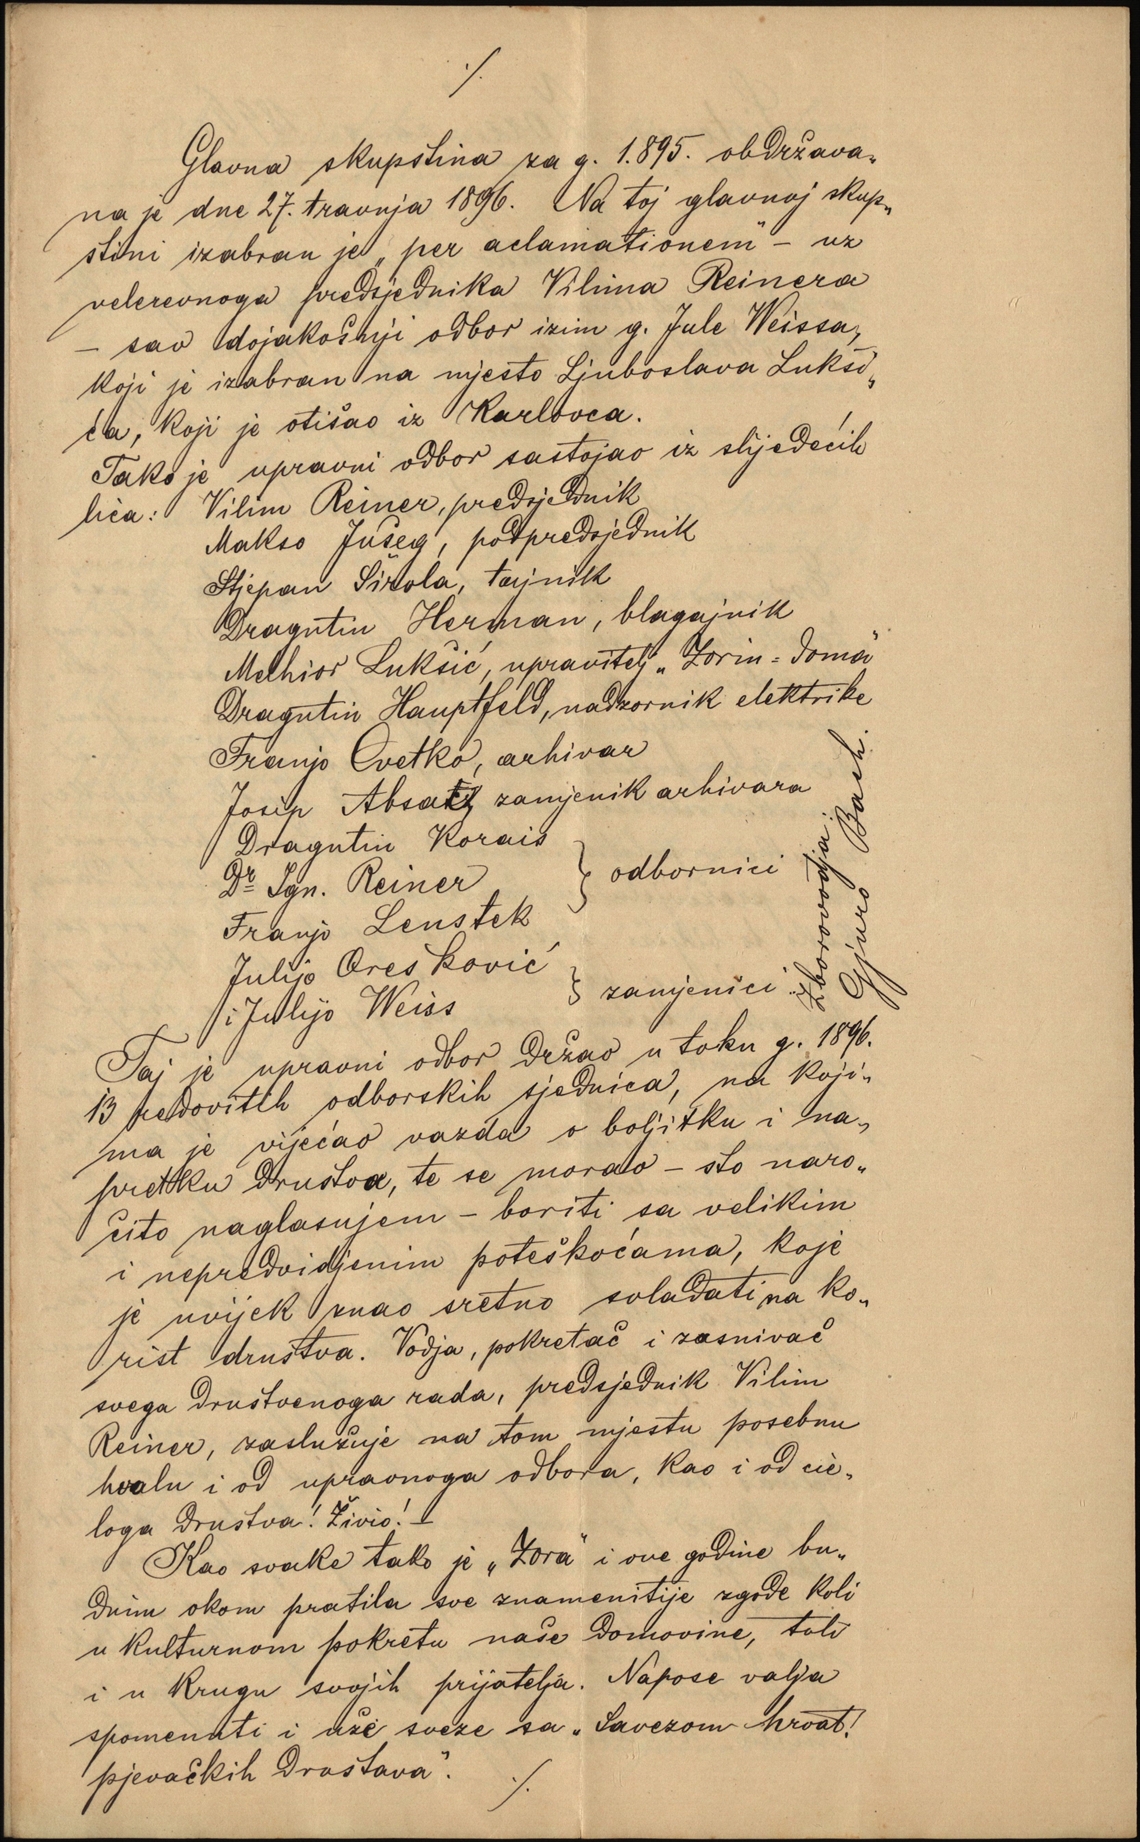 ·/.
Glavna skupština za g. 1.895. obdržava„
na je dne 27. travnja 1896. Na toj glavnoj skup„
štini izabran je „per aclamationem" – uz
velerevnoga predsjednika Vilima Reinera
– sav dojakošnji odbor izim g. Jule Weissa,
koji je izabran na mjesto Ljuboslava Lukši„
ća, koji je otišao iz Karlovca.
Tako je upravni odbor sastojao iz slijedećih
lica: Vilim Reiner, predsjednik
Makso Jušeg, podpredsjednik
Stjepan Širola, tajnik
Dragutin Herman, blagajnik
Melhior Lukšić, upravitelj „Zorin-doma"
Dragutin Hauptfeld, nadzornik elektrike
Franjo Cvetko, arhivar
Josip Absatz zamjenik arhivara
Dragutin Korais
Dr Ign. Reiner } odbornici
Franjo Lenstek
Julijo Oresković
i Julijo Weiss } zamjenici
Zborovodja:
Gjuro Bach.
Taj je upravni odbor držao u toku g. 1896.
13 redovitih odborskih sjednica, na koji„
ma je vijećao vazda o boljitku i na„
predku društva, te se morao – što naro„
čito naglasujem – boriti sa velikim
i nepredvidjenim poteškoćama, koje
je uvijek znao sretno svladati na ko„
rist društva. Vodja, pokretač i zasnivač
svega društvenoga rada, predsjednik Vilim
Reiner, zaslužuje na tom mjestu posebnu
hvalu i od upravnoga odbora, kao i od cie„
loga društva! Živio! –
Kao svake tako je „Zora" i ove godine bu„
dnim okom pratila sve znamenitije zgode koli
u kulturnom pokretu naše domovine, toli
i u krugu svojih prijatelja. Napose valja
spomenuti i uže sveze sa „Savezom hrvat.
pjevačkih društava".
·/.